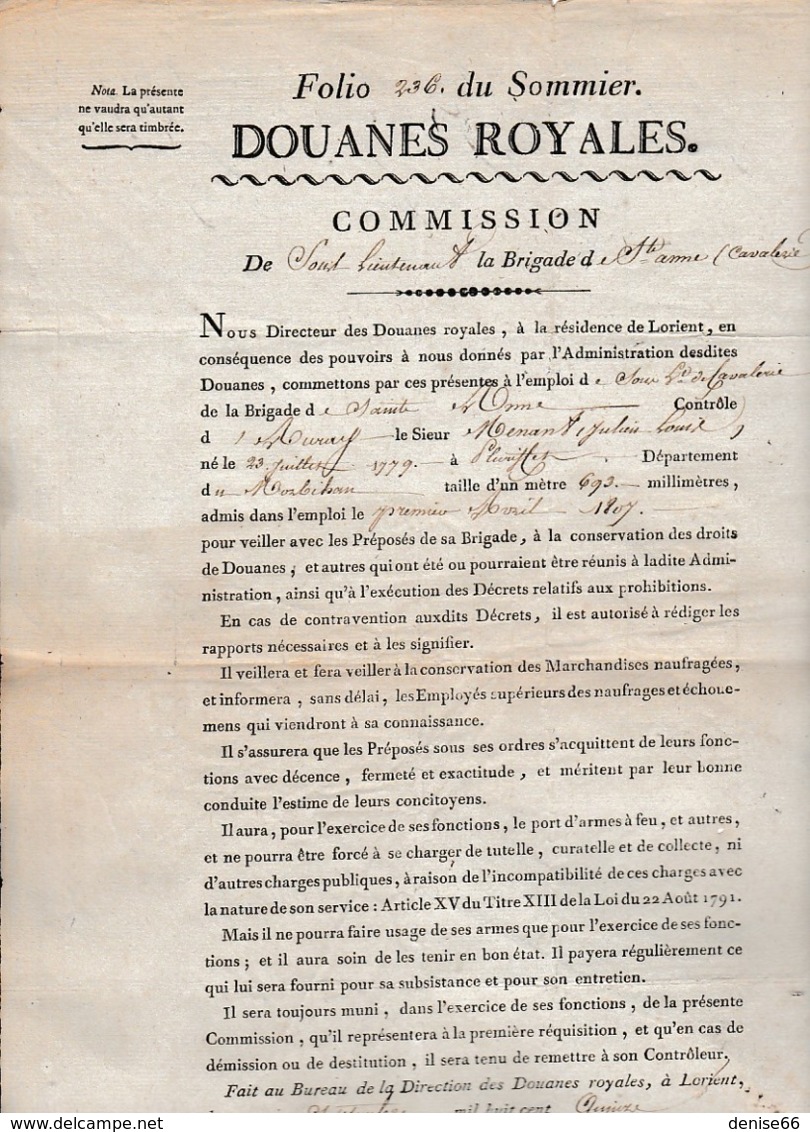 Nota. La présente
ne vaudra qu'autant
qu'elle sera timbrée.
Folio 236. du Sommier.
DOUANES ROYALES.
COMMISSION
De Sous Lieutenant la Brigade d e Ste anne (Cavalerie
NOUS Directeur des Douanes royales, à la résidence de Lorient, en
conséquence des pouvoirs à nous donnés par l'Administration desdites
Douanes, commettons par ces présentes à l'emploi d e Sous Lt. de Cavalerie
de la Brigade d e Sainte Anne Contrôle
d' Auray le Sieur Menant, Julien Louis
né le 23 juillet 1779. à Département
du Morbihan taille d'un mètre 693. millimètres,
admis dans l'emploi le premier Avril 1807.
pour veiller avec les Préposés de sa Brigade, à la conservation des droits
de Douanes, et autres qui ont été ou pourraient être réunis à ladite Admi-
nistration, ainsi qu'à l'exécution des Décrets relatifs aux prohibitions.
En cas de contravention auxdits Décrets, il est autorisé à rédiger les
rapports nécessaires et à les signifier.
Il veillera et fera veiller à la conservation des Marchandises naufragées,
et informera, sans délai, les Employés supérieurs des naufrages et échoue-
mens qui viendront à sa connaissance.
Il s'assurera que les Préposés sous ses ordres s'acquittent de leurs fonc-
tions avec décence, fermeté et exactitude, et méritent par leur bonne
conduite l'estime de leurs concitoyens.
Il aura, pour l'exercice de ses fonctions, le port d'armes à feu, et autres,
et ne pourra être forcé à se charger de tutelle, curatelle et de collecte, ni
d'autres charges publiques, à raison de l'incompatibilité de ces charges avec
la nature de son service : Article XV du Titre XIII de la Loi du 22 Août 1791.
Mais il ne pourra faire usage de ses armes que pour l'exercice de ses fonc-
tions; et il aura soin de les tenir en bon état. Il payera régulièrement ce
qui lui sera fourni pour sa subsistance et pour son entretien.
Il sera toujours muni, dans l'exercice de ses fonctions, de la présente
Commission, qu'il représentera à la première réquisition, et qu'en cas de
démission ou de destitution, il sera tenu de remettre à son Contrôleur.
Fait au Bureau de la Direction des Douanes royales, à Lorient,
mil huit cent Quinze
denise66